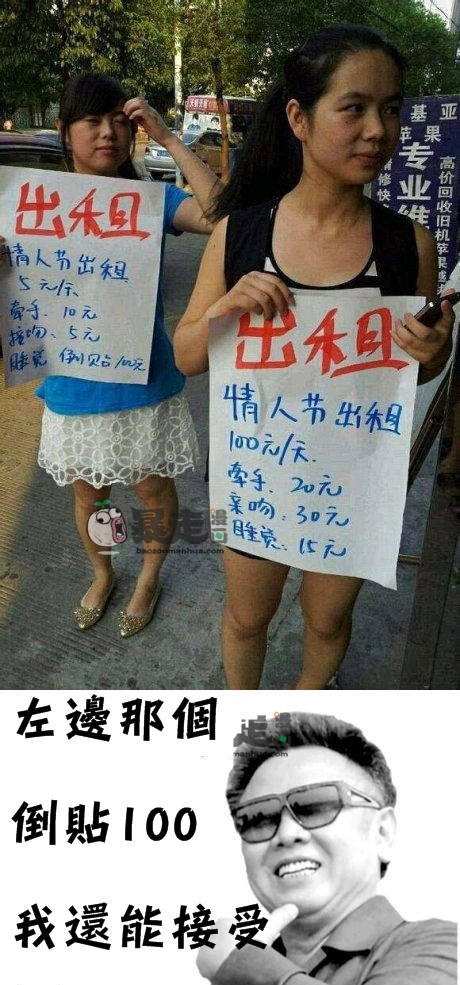 出租
情人节出租
5元/天
牵手：10元
接吻：5元
睡觉 倒贴100元
出租
情人节出租
100元/天.
牵手：20元
亲吻：30元
睡觉：15元
基 亚
苹果
专业维
高价回收旧机苹果
暴走漫画
baozoumanhua.com
左邊那個
倒貼100
我還能接受